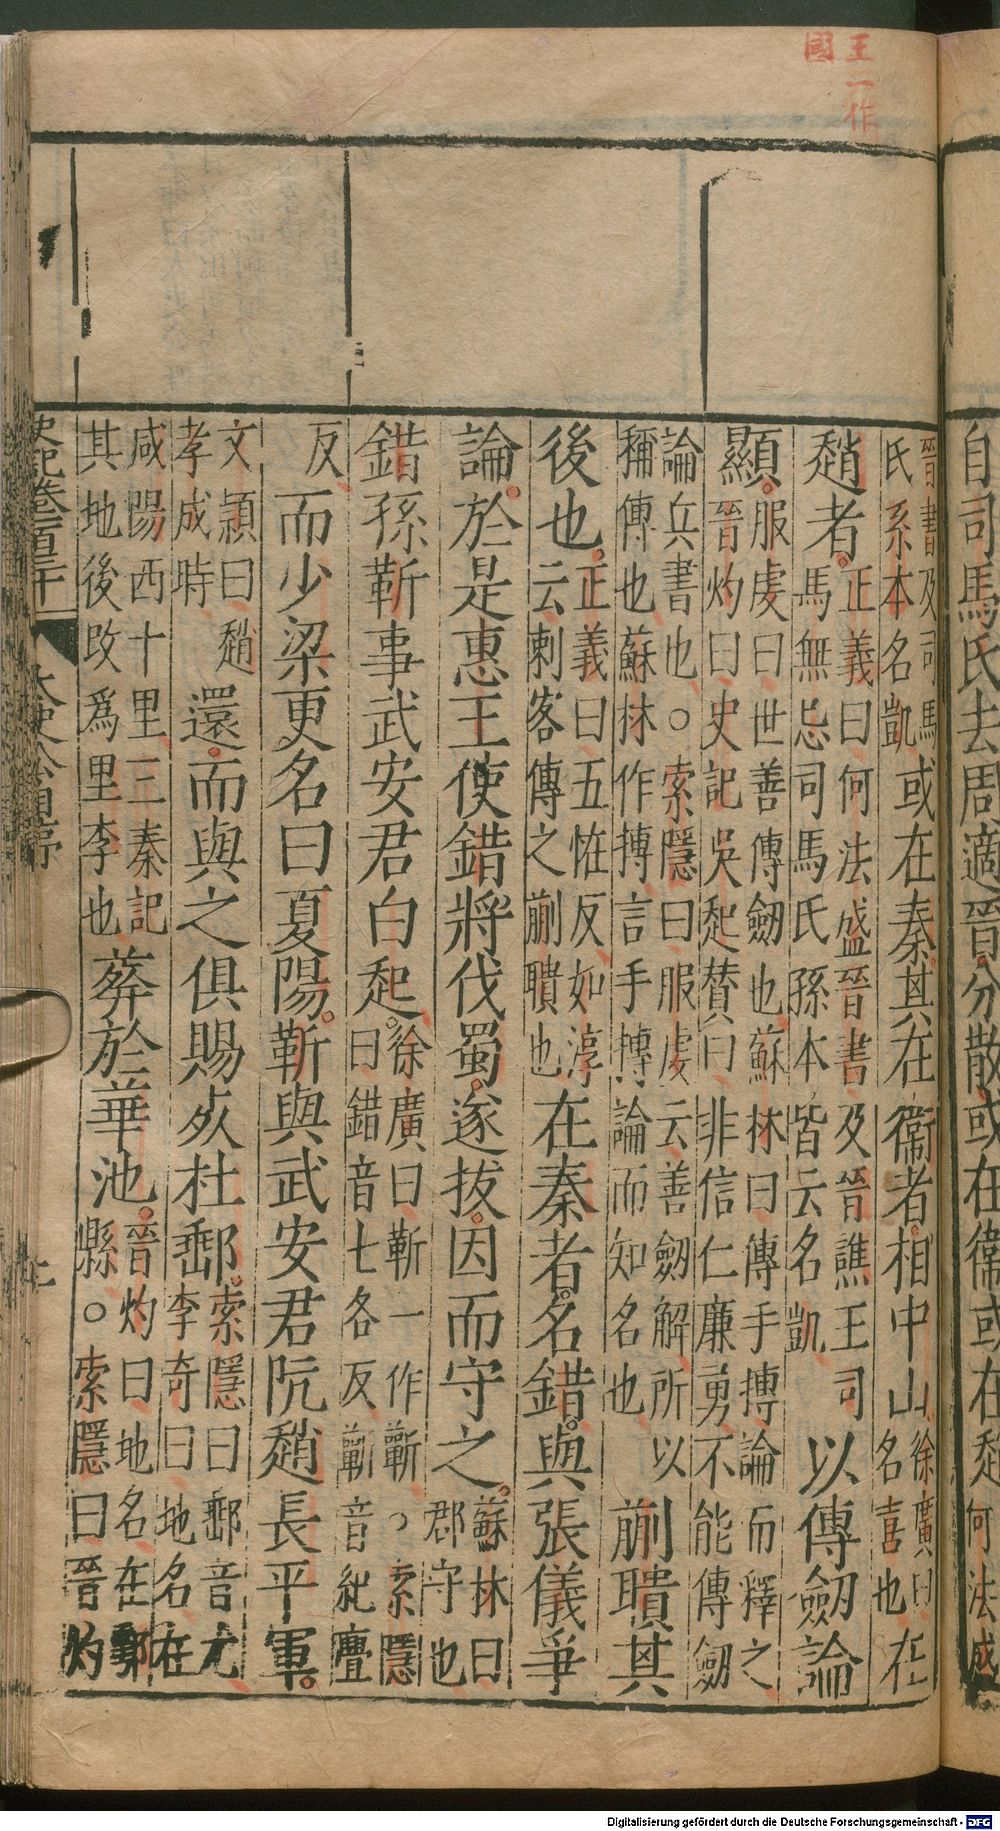 王一作
國
自司馬氏去周適晉分散或在衞或在趙何法盛
晉書及司馬
氏系本名凱
或在秦其在衞者相中山
徐廣曰
名喜也
在
趙者
正義曰何法盛晉書及晉譙王司
馬無忌司馬氏孫本皆云名凱
以傳劒論
顯
服虔曰世善傳劒也蘇林曰傳手搏論而釋之
晉灼曰史記吳起贊曰非信仁廉勇不能傳劒
論兵書也○索隱曰服虔云善劒解所以
稱傳也蘇林作搏言手搏論而知名也
蒯聵其
後也
正義曰五恠反如淳
云刺客傳之蒯聵也
在秦者名錯與張儀爭
論於是惠王使錯將伐蜀遂拔因而守之
蘇林曰
郡守也
錯孫靳事武安君白起
徐廣曰靳一作蘄○索隱
曰錯音七各反蘄音紀舋
反
而少梁更名曰夏陽靳與武安君阬趙長平軍
文穎曰趙
孝成時
還而與之俱賜死杜郵
索隱曰郵音尤
李奇曰地名在
咸陽西十里三秦記
其地後改爲里李也
葬於華池
晉灼曰地名在鄠
縣○索隱曰晉灼
史記卷一百三十 太史公自序
Digitalisierung gefördert durch die Deutsche Forschungsgemeinschaft - DFG